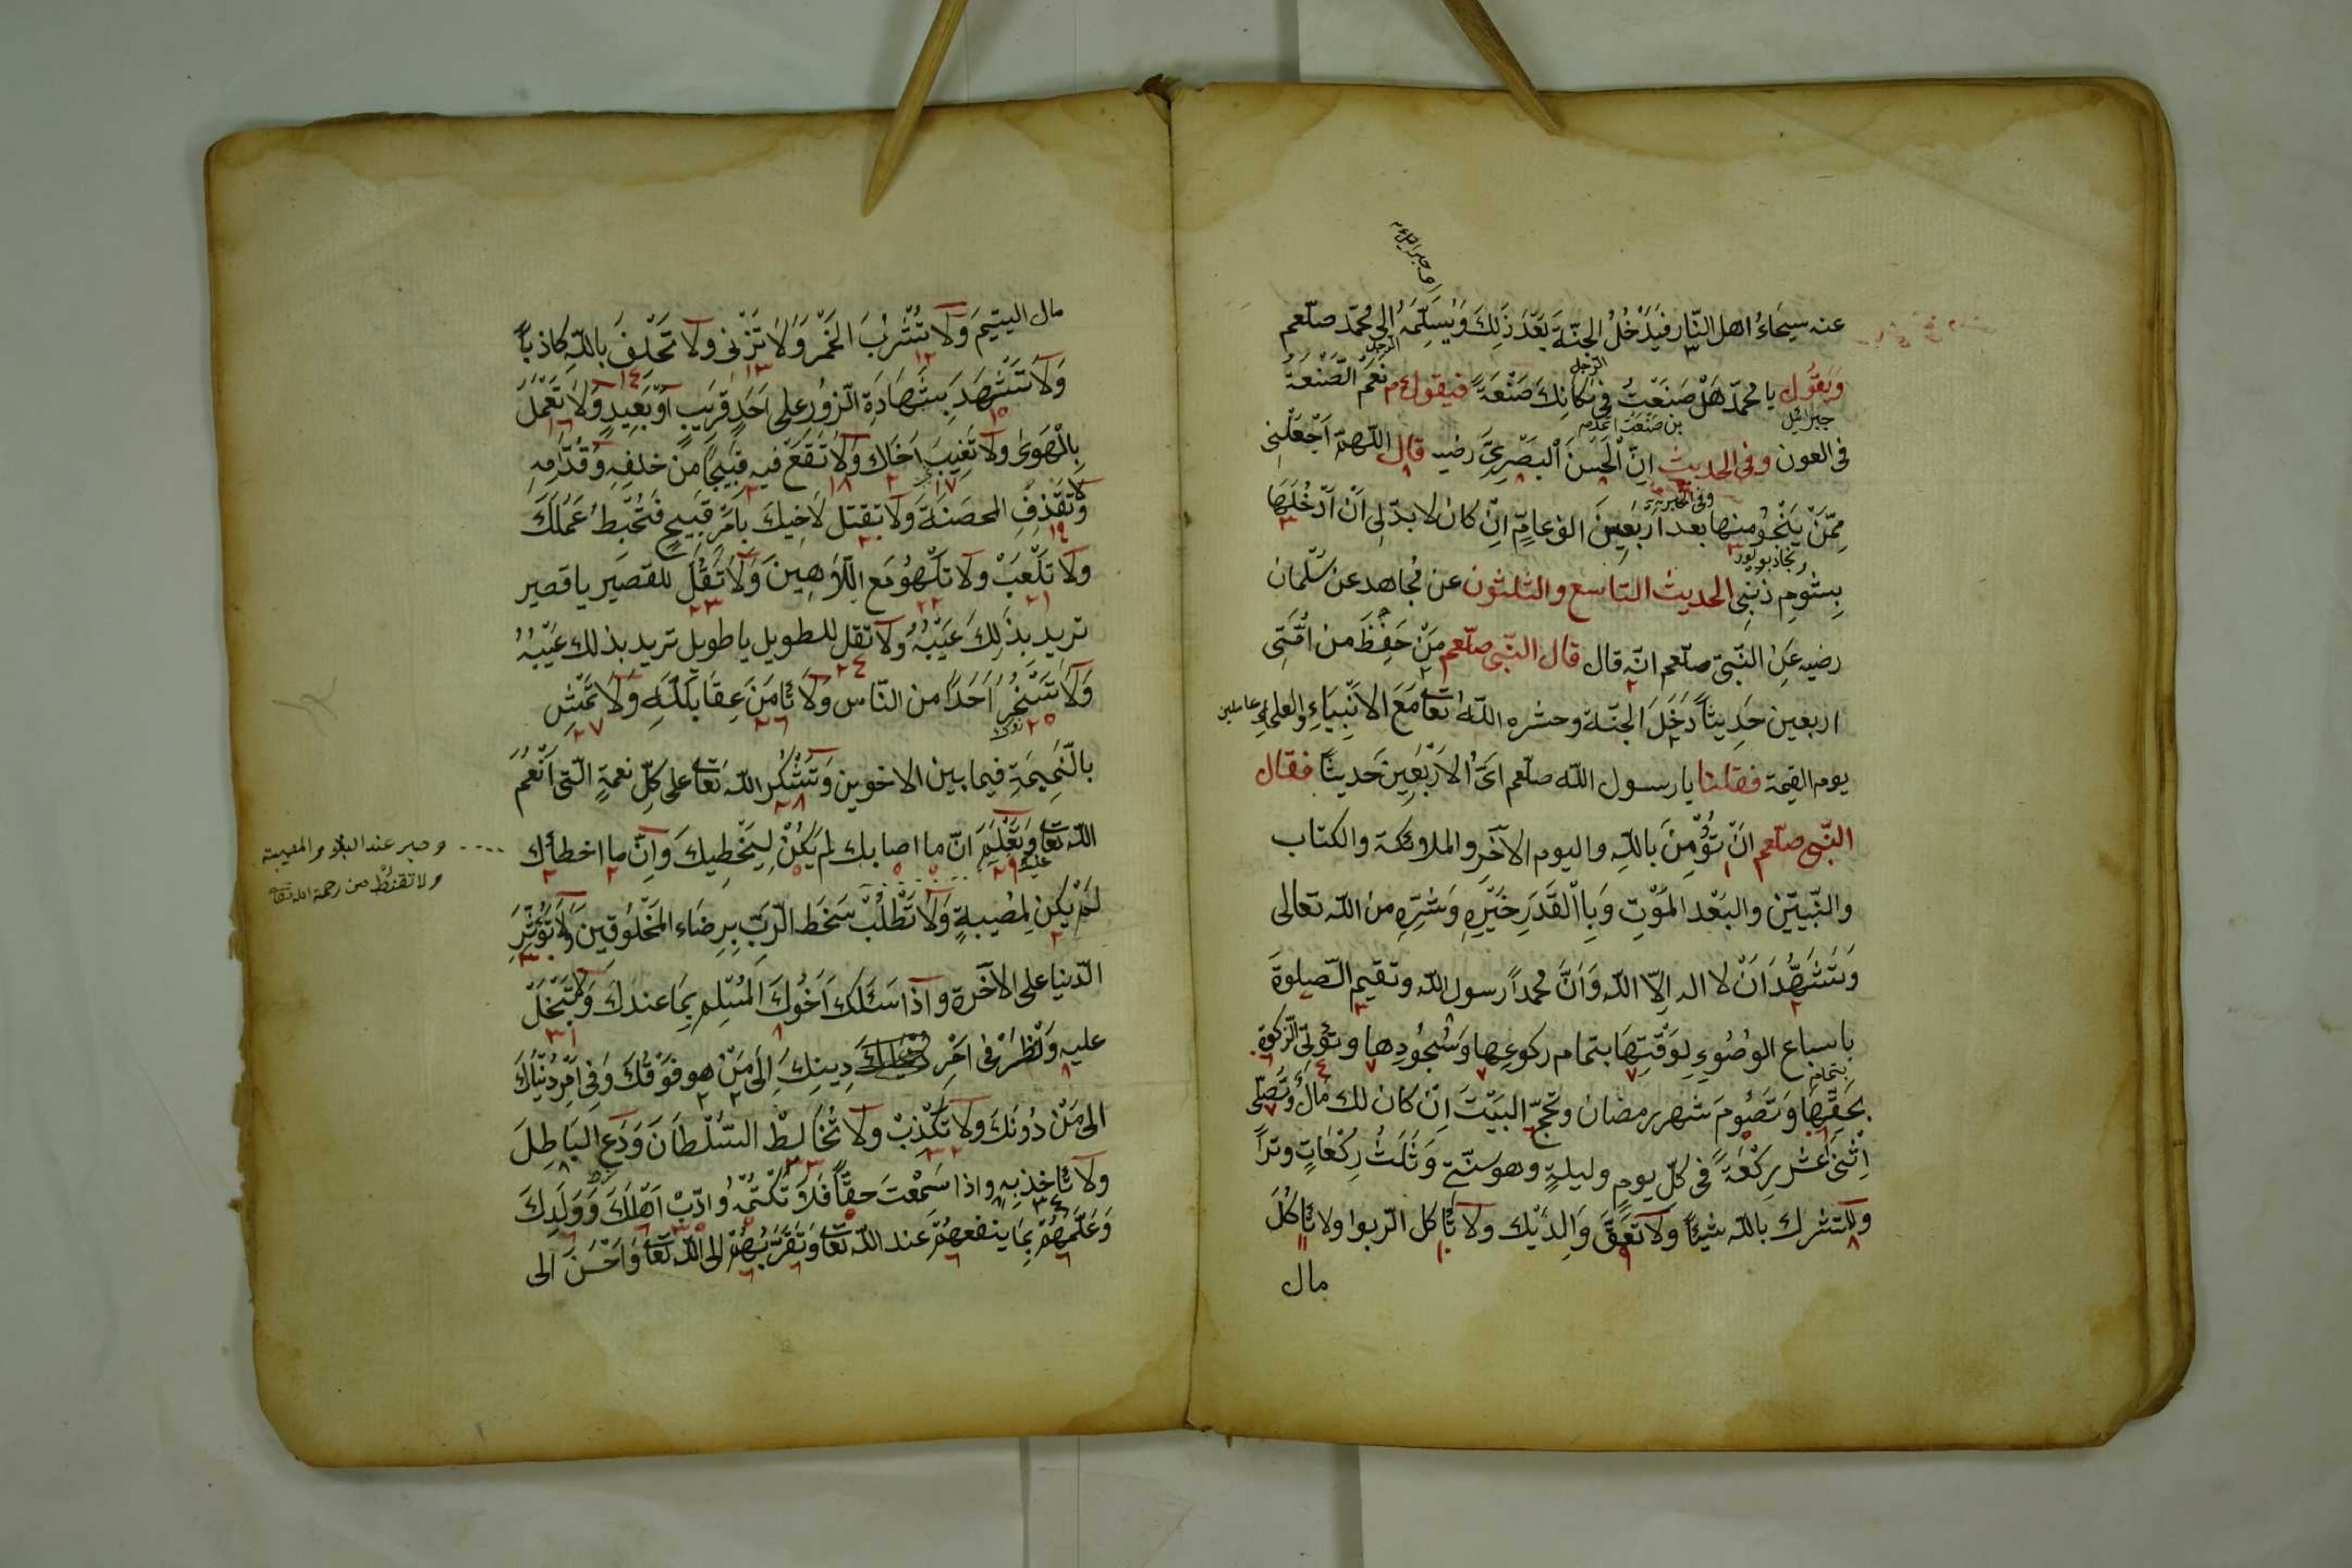 عنه سيماءُ اهل النّار فيَدْخُلُ الجنّةَ بَعْدَ ذَلِكَ وَيُسَلِّمَهُ الى محمّد صلّعم
وَيَقُول يا محمّد هَلْ صَنَعْتُ فى مَكانِكَ صَنْعَةً فيقول عم نَعَمْ الصَّنْعَةُ
فى العون وفى الحديث اِنّ الْحَسَنَ الْبَصْرِىَّ رضيه قال اللّهمّ اجْعَلْنى
مِمَّنْ يَنْجُو منها بعد اَرْبَعِينَ الف عامٍ اِنْ كان لا بدّ لى اَنْ اَدْخُلَهَا
بِشُومِ ذَنْبى الحديث التاسع والثلثون عن مُجاهد عن سَلمان
رضيه عَنِ النَّبىّ صلّعم انّه قال قال النّبى صلّعم مَنْ حَفِظَ من اُمَّتِى
اربعين حَدِيثاً دَخَلَ الجنّة وحشره اللّهُ تعَا مَعَ الاَنْبِيَاءِ والعلماءِ
يوم القيمة فقلنا يا رسول اللّه صلّعم اىُّ الاَرْبَعِينَ حَديثاً فقال
النّبى صلّعم اَنْ تُؤْمِنَ باللّهِ واليوم الآخَرِ والملائكة والكتاب
والنَّبِيّين والبَعْد المَوْتِ وَبِاالْقَدَرِ خَيْرِهِ وَشَرِّهِ من اللّه تعالى
وَتَشْهَدُ اَنْ لا اله اِلّا اللّه وَاَنَّ محمداً رسول اللّه وتقيم الصّلوةَ
باسباع الوُضُوءِ لِوَقْتِهَا بتمام ركوعِها وَسُجُودِها وتؤتى الزّكوة
بِحَقِّهَا وَتَصُومَ شهر رمضان وتحجّ البَيْتَ اِنْ كان لك مَالٌ وَتُصَلِّى
اِثْنَىْ عَشَر رَكْعَةً فى كلّ يومٍ وليلةٍ وهو سنّتى وَثَلَثُ رَكْعَاتٍ وتراً
ولا تشرك باللّه شيئاً وَلاَ تَعُقَّ وَالِدَيْك ولا تَأكل الرّبوا ولا تَأكُلَ
مال
مال اليتيمَ وَلاَ تَشْرَبَ الخَمْرَ وَلاَ تَزْنى ولا تَحْلِفَ باللّهِ كاذباً
وَلاَ تَشْهَدَ بِشَهَادَةِ الزّورِ على اَحَدٍ قَرِيبٍ اَوْ بَعِيدٍ وَلاَ تَعْمَلُ
بِالْهَوَى ولا تَغِيبَ اَخَاك ولا تَقَعْ فيه قبيحاً من خلفِهِ وَقُدّامِهِ
ولا تَقْذِفِ المحصَنَةَ ولا تقتل لاَخِيكَ بِاَمْرٍ قبيحٍ فَتُحْبِطُ عَمَلَكَ
ولا تَلْعَبْ ولا تَلْهُو مَع اللّاهِينَ وَلاَ تَقُلَ للقصير يا قصير
تريد بِذَلِكَ عَيْبُهُ ولا تقل للطويل يا طويل تريد بذلك عَيْبُهُ
وَلاَ تَسْخَرُ اَحَدًا من النّاس وَلاَ تَأمَنَ عِقَابَ اللّهِ وَلاَ تَمْشِ
بالنَّمِيمَةِ فيما بين الاخوين وَتَشْكُر اللّه تَعَا على كلّ نعمةٍ الّتى اَنْعَمَ
اللّه تعَا وَتَعْلَمَ انّ ما اصابك لم يَكُنْ لِيُخْطِيكَ وَاِنّ ما اخطاَك
لم يَكُن لِمُصيبةٍ وَلاَ تَطْلُبْ سَخَطَ الرّبِّ بِرِضَاء المَخْلُوقِين وَلاَ تُؤْثِرَ
الدّنيا على الآخرة واذا سَئَلَكَ اَخُوكَ المُسْلِم بِمَا عندك وَلاَ تَبْخَلْ
عليه وَانْظُرْ فى اَمْرِ دِينِكَ اِلَى مَنْ هو فَوْقَكَ وَفِى اَمْرِ دُنْيَاكَ
الى مَنْ دُونَكَ ولا تَكْذِبْ ولا تُخَالِطْ السّلْطَانَ وَدَعِ البَاطِلَ
ولا تأخذ به واذا سَمِعْتَ حقّاً فَلاَ تَكْتُمْهُ وادّبْ اَهْلَكَ وَوَلَدِكَ
وَعَلِّمْهُمْ بِمَا ينفعهُمْ عند اللّه تعَا وَتَقَرَّبُهُمْ الى اللّه تَعَا وَاَحْسَنَ الى
وصبر عند البلاء والمصيبة
ولا تقنط من رحمة الله تعا